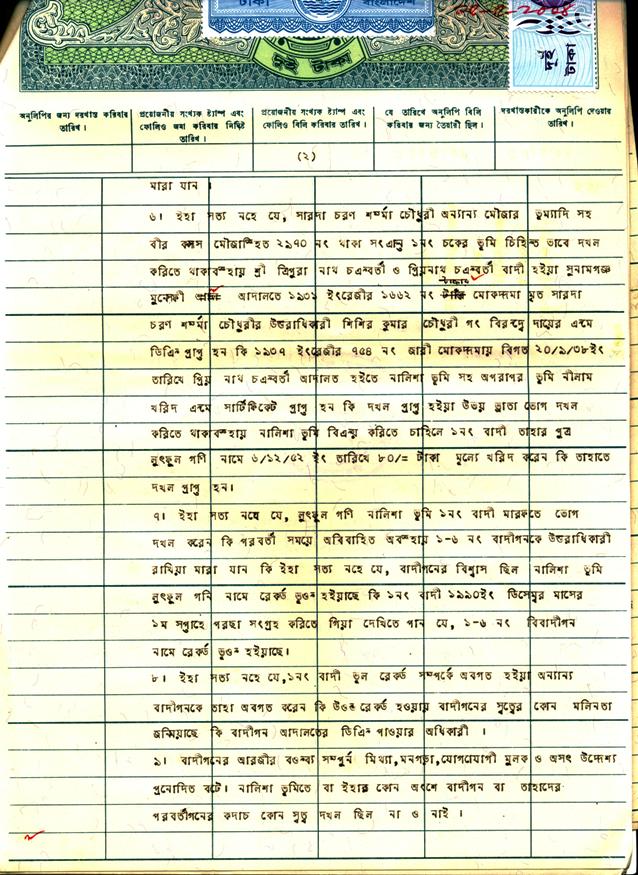 টাকা
বাংলাদেশ
দুই টাকা
দুই টাকা
অনুলিপির জন্য দরখাস্ত করিবার তারিখ।
প্রয়োজনীয় সংখ্যক ষ্ট্যাম্প এবং ফোলিও জমা করিবার নির্দ্দিষ্ট তারিখ।
প্রয়োজনীয় সংখ্যক ষ্ট্যাম্প এবং ফোলিও বিলি করিবার তারিখ।
যে তারিখে অনুলিপি বিলি করিবার জন্য তৈয়ারী ছিল।
দরখাস্তকারীকে অনুলিপি দেওয়ার তারিখ।
(২)
মারা যান।
৬। ইহা সত্য নহে যে, সারদা চরণ শর্ম্মা চৌধুরী অন্যান্য মৌজার ভূম্যাদি সহ
বীর কলস মৌজাস্হিত ২৯৭০ নং থাকা সংক্রান্ত ১নং চকের ভূমি চিহ্নিত ভাবে দখল
করিতে থাকাবস্হায় শ্রী ত্রিপুরা নাথ চক্রবর্তী ও প্রিয়নাথ চক্রবর্তী বাদী হইয়া সুনামগঞ্জ
মুন্সেফী আদালতে ১৯৩১ ইংরেজীর ১৬৬২ নং টাকার মোকদ্দমা মৃত সারদা
চরণ শর্ম্মা চৌধুরীর উত্তরাধিকারী শিশির কুমার চৌধুরী গং বিরুদ্ধে দায়ের ক্রমে
ডিক্রি প্রাপ্ত হন কি ১৯৩৭ ইংরেজীর ৭৫৪ নং জারী মোকদ্দমায় বিগত ২০/১/৩৮ইং
তারিখে প্রিয় নাথ চক্রবর্তী আদালত হইতে নালিশা ভূমি সহ অপরাপর ভূমি নীলাম
খরিদ ক্রমে সার্টিফিকেট প্রাপ্ত হন কি দখল প্রাপ্ত হইয়া উভয় ভ্রাতা ভোগ দখল
করিতে থাকাবস্হায় নালিশা ভূমি বিক্রয় করিতে চাহিলে ১নং বাদী তাহার পুত্র
লুৎফুল গণি নামে ৬/১২/৫২ ইং তারিখে ৮০/= টাকা মূল্যে খরিদ করেন কি তাহাতে
দখল প্রাপ্ত হন।
৭। ইহা সত্য নহে যে, লুৎফুল গণি নালিশা ভূমি ১নং বাদী মারফতে ভোগ
দখল করেন কি পরবর্তী সময়ে অবিবাহিত অবস্হায় ১-৬ নং বাদীগনকে উত্তরাধিকারী
রাখিয়া মারা যান কি ইহা সত্য নহে যে, বাদীগনের বিশ্বাস ছিল নালিশা ভূমি
লুৎফুল গনি নামে রেকর্ড ভুক্ত হইয়াছে কি ১নং বাদী ১৯৯০ইং ডিসেম্বর মাসের
১ম সপ্তাহে পরছা সংগ্রহ করিতে গিয়া দেখিতে পান যে, ১-৬ নং বিবাদীগন
নামে রেকর্ড ভুক্ত হইয়াছে।
৮। ইহা সত্য নহে যে,১নং বাদী ভুল রেকর্ড সম্পর্কে অবগত হইয়া অন্যান্য
বাদীগনকে তাহা অবগত করেন কি উক্ত রেকর্ড হওয়ায় বাদীগনের স্বত্বের কোন মলিনতা
জন্মিয়াছে কি বাদীগন আদালতের ডিক্রি পাওয়ার অধিকারী ।
৯। বাদীগনের আরজীর বক্তব্য সম্পূর্ন মিথ্যা,মনগড়া,যোগাযোগী মূলক ও অসৎ উদ্দেশ্য
প্রনোদিত বটে। নালিশা ভূমিতে বা ইহার কোন অংশে বাদীগন বা তাহাদের
পরবর্তীগনের কদাচ কোন স্বত্ব দখল ছিল না ও নাই ।